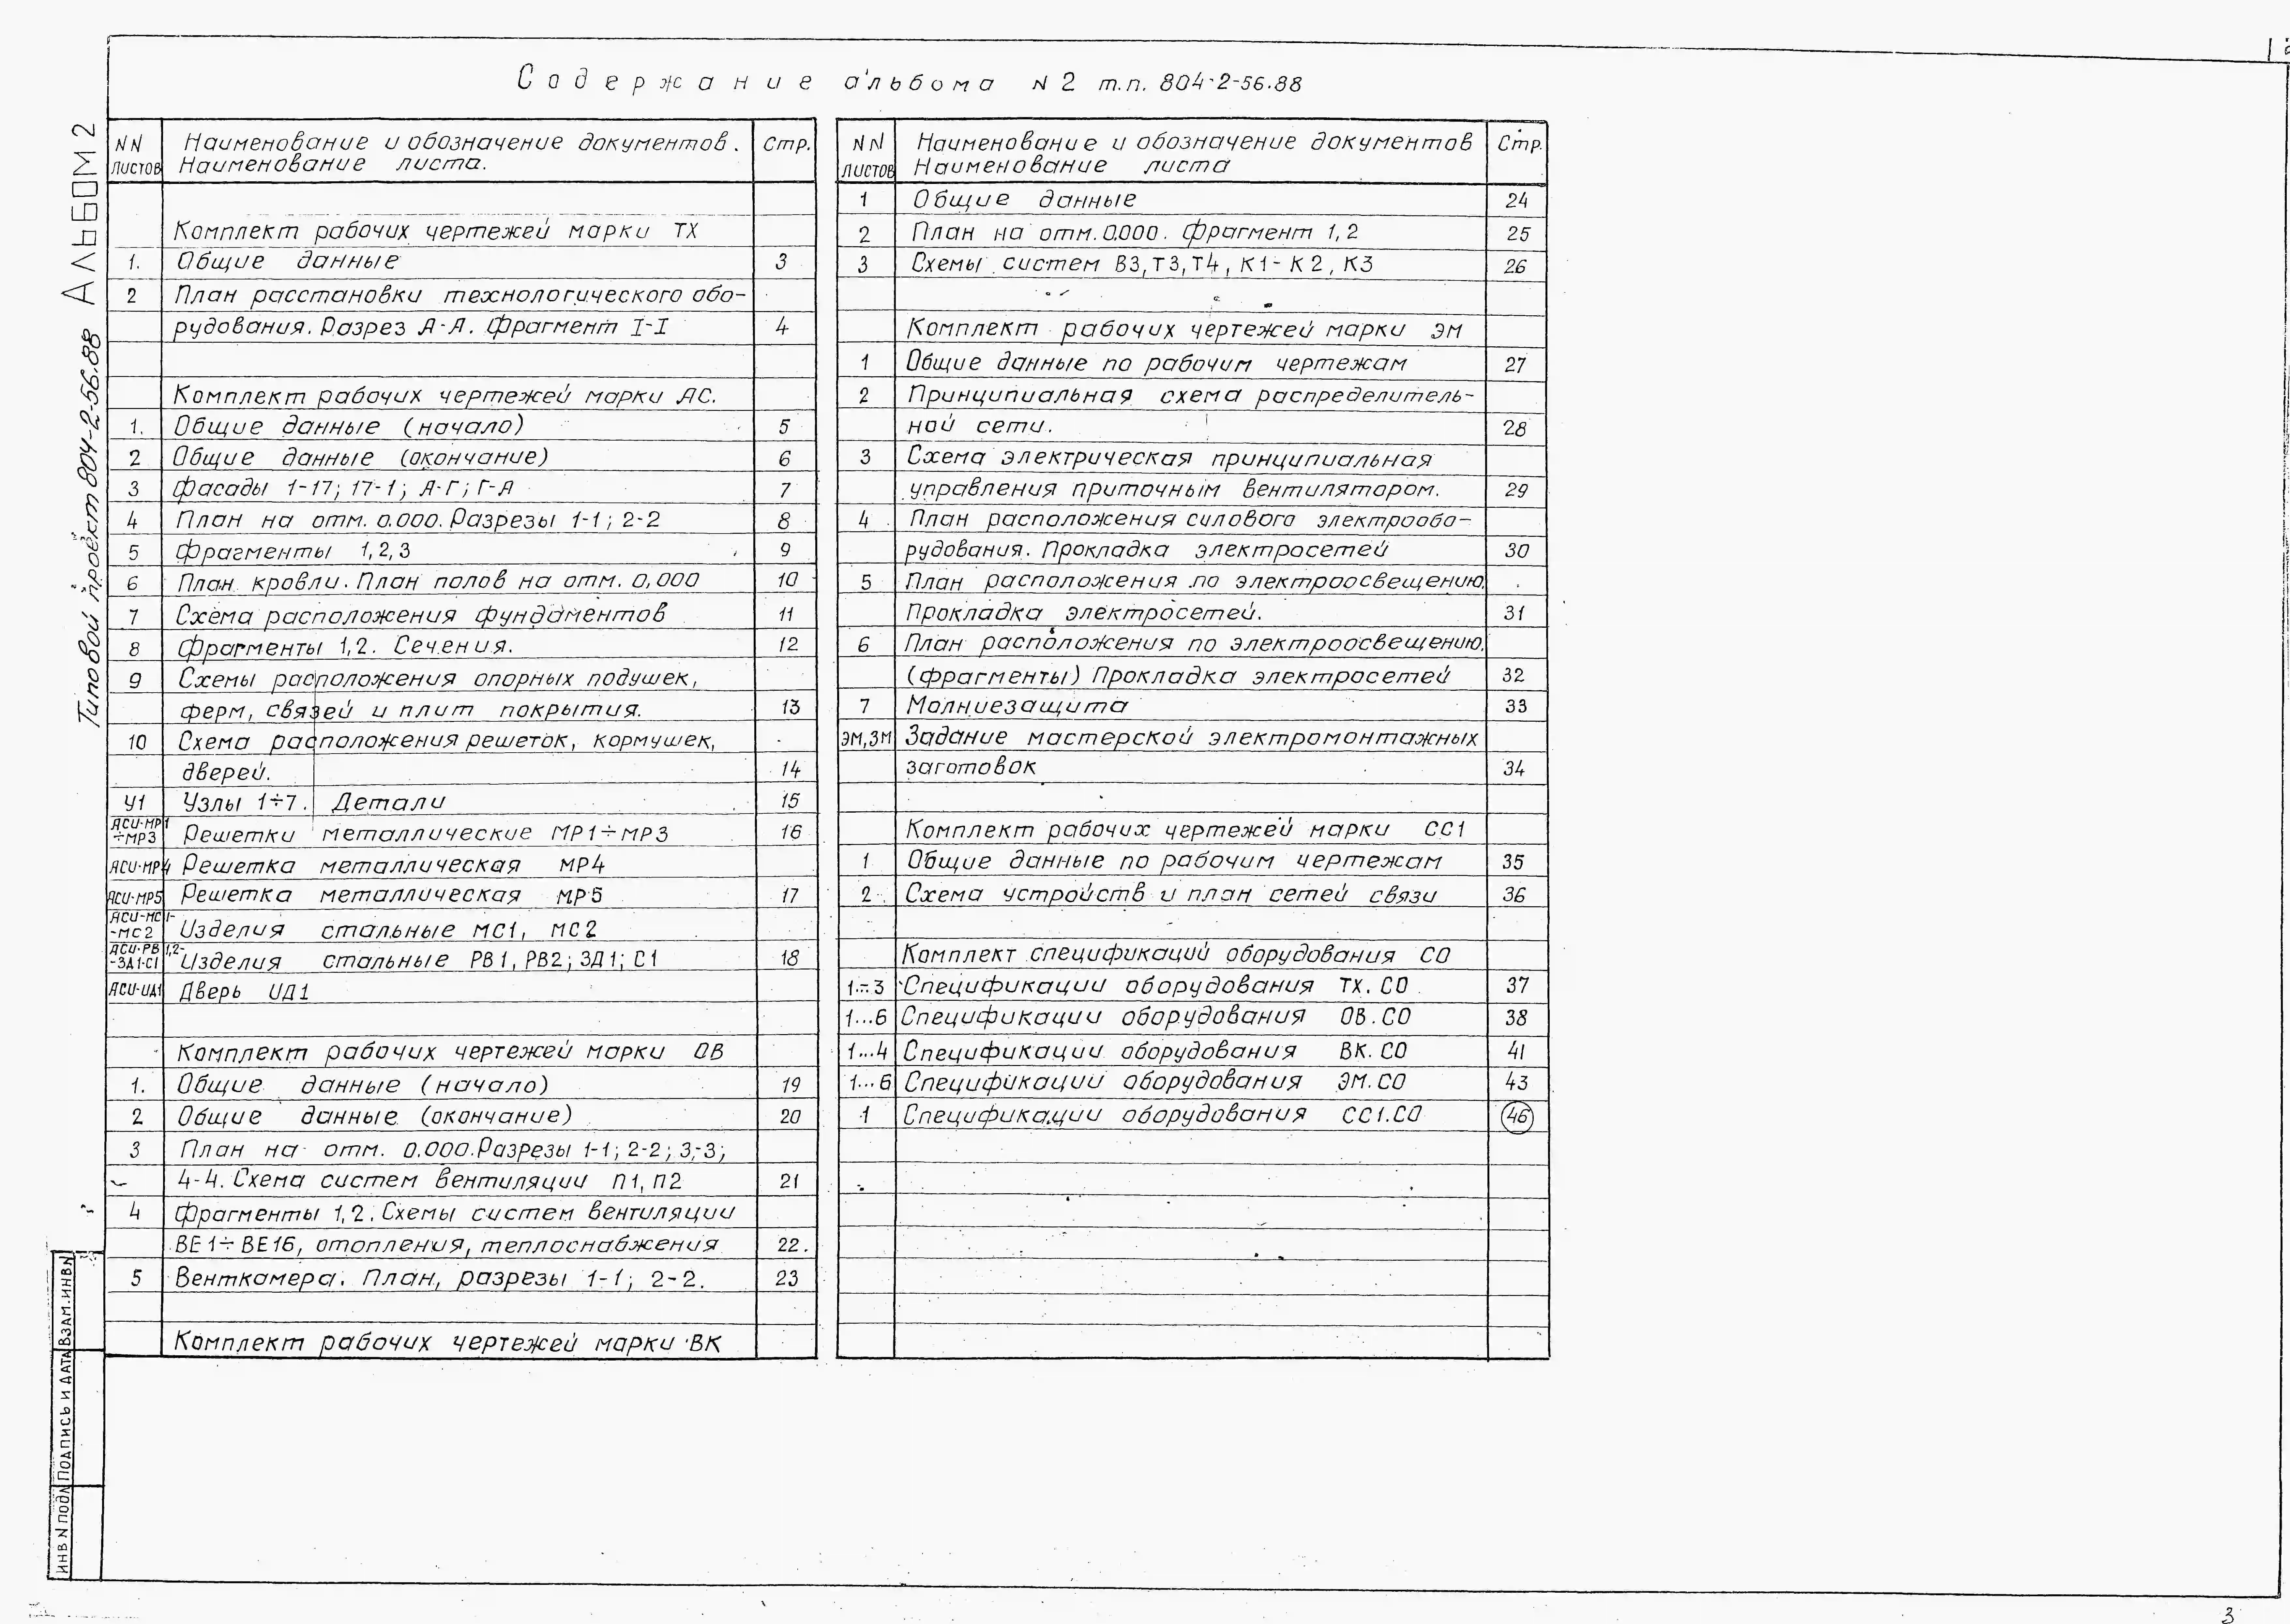 Содержание альбома N 2 т.п. 804-2-56.88
АЛЬБОМ 2
Типовой проект 804-2-56.88
NN листов
Наименование и обозначение документов.
Наименование листа.
Стр.
Комплект рабочих чертежей марки ТХ
1. Общие данные 3
2 План расстановки технологического обо-
рудования. Разрез А-А. Фрагмент I-I 4
Комплект рабочих чертежей марки АС.
1. Общие данные (начало) 5
2 Общие данные (окончание) 6
3 Фасады 1-17; 17-1; А-Г; Г-А 7
4 План на отм. 0.000. Разрезы 1-1; 2-2 8
5 Фрагменты 1,2,3 9
6 План кровли. План полов на отм. 0,000 10
7 Схема расположения фундаментов 11
8 Фрагменты 1,2. Сечения. 12
9 Схемы расположения опорных подушек,
ферм, связей и плит покрытия. 13
10 Схема расположения решеток, кормушек,
дверей. 14
У1 Узлы 1÷7. Детали 15
АСИ-МР1
÷МР3 Решетки металлические МР1÷МР3 16
АСИ-МР4 Решетка металлическая МР4
АСИ-МР5 Решетка металлическая МР5 17
АСИ-МС1-
-МС2 Изделия стальные МС1, МС2
АСИ-РВ1,2-
-ЗД1-С1 Изделия стальные РВ1, РВ2; ЗД1; С1 18
АСИ-ИД1 Дверь ИД1
Комплект рабочих чертежей марки ОВ
1. Общие данные (начало) 19
2 Общие данные (окончание) 20
3 План на отм. 0.000. Разрезы 1-1; 2-2; 3-3;
4-4. Схема систем вентиляции П1, П2 21
4 Фрагменты 1,2. Схемы систем вентиляции
ВЕ1÷ВЕ16, отопления, теплоснабжения 22.
5 Венткамера. План, разрезы 1-1; 2-2. 23
Комплект рабочих чертежей марки ВК
NN листов
Наименование и обозначение документов
Наименование листа
Стр.
1 Общие данные 24
2 План на отм. 0.000. Фрагмент 1,2 25
3 Схемы систем В3, Т3, Т4, К1-К2, К3 26
Комплект рабочих чертежей марки ЭМ
1 Общие данные по рабочим чертежам 27
2 Принципиальная схема распределитель-
ной сети. 28
3 Схема электрическая принципиальная
управления приточным вентилятором. 29
4 План расположения силового электрообо-
рудования. Прокладка электросетей 30
5 План расположения по электроосвещению.
Прокладка электросетей. 31
6 План расположения по электроосвещению.
(фрагменты) Прокладка электросетей 32
7 Молниезащита 33
ЭМ,ЗМ Задание мастерской электромонтажных
заготовок 34
Комплект рабочих чертежей марки СС1
1 Общие данные по рабочим чертежам 35
2 Схема устройств и план сетей связи 36
Комплект спецификаций оборудования СО
1÷3 Спецификации оборудования ТХ.СО 37
1...6 Спецификации оборудования ОВ.СО 38
1...4 Спецификации оборудования ВК.СО 41
1...6 Спецификации оборудования ЭМ.СО 43
1 Спецификации оборудования СС1.СО 46
ИНВ N ПОДЛ
ПОДПИСЬ И ДАТА
ВЗАМ.ИНВ.N
3